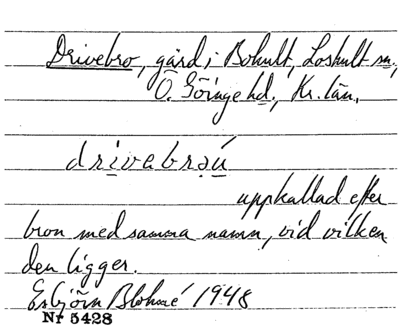 Drivebro, gård i Bohult, Loshult sn,
Ö. Göinge hd., Kr. län.
drivebro̤ú
uppkallad efter
bron med samma namn, vid vilken
den ligger.
Esbjörn Blohmé 1948
Nr 5428